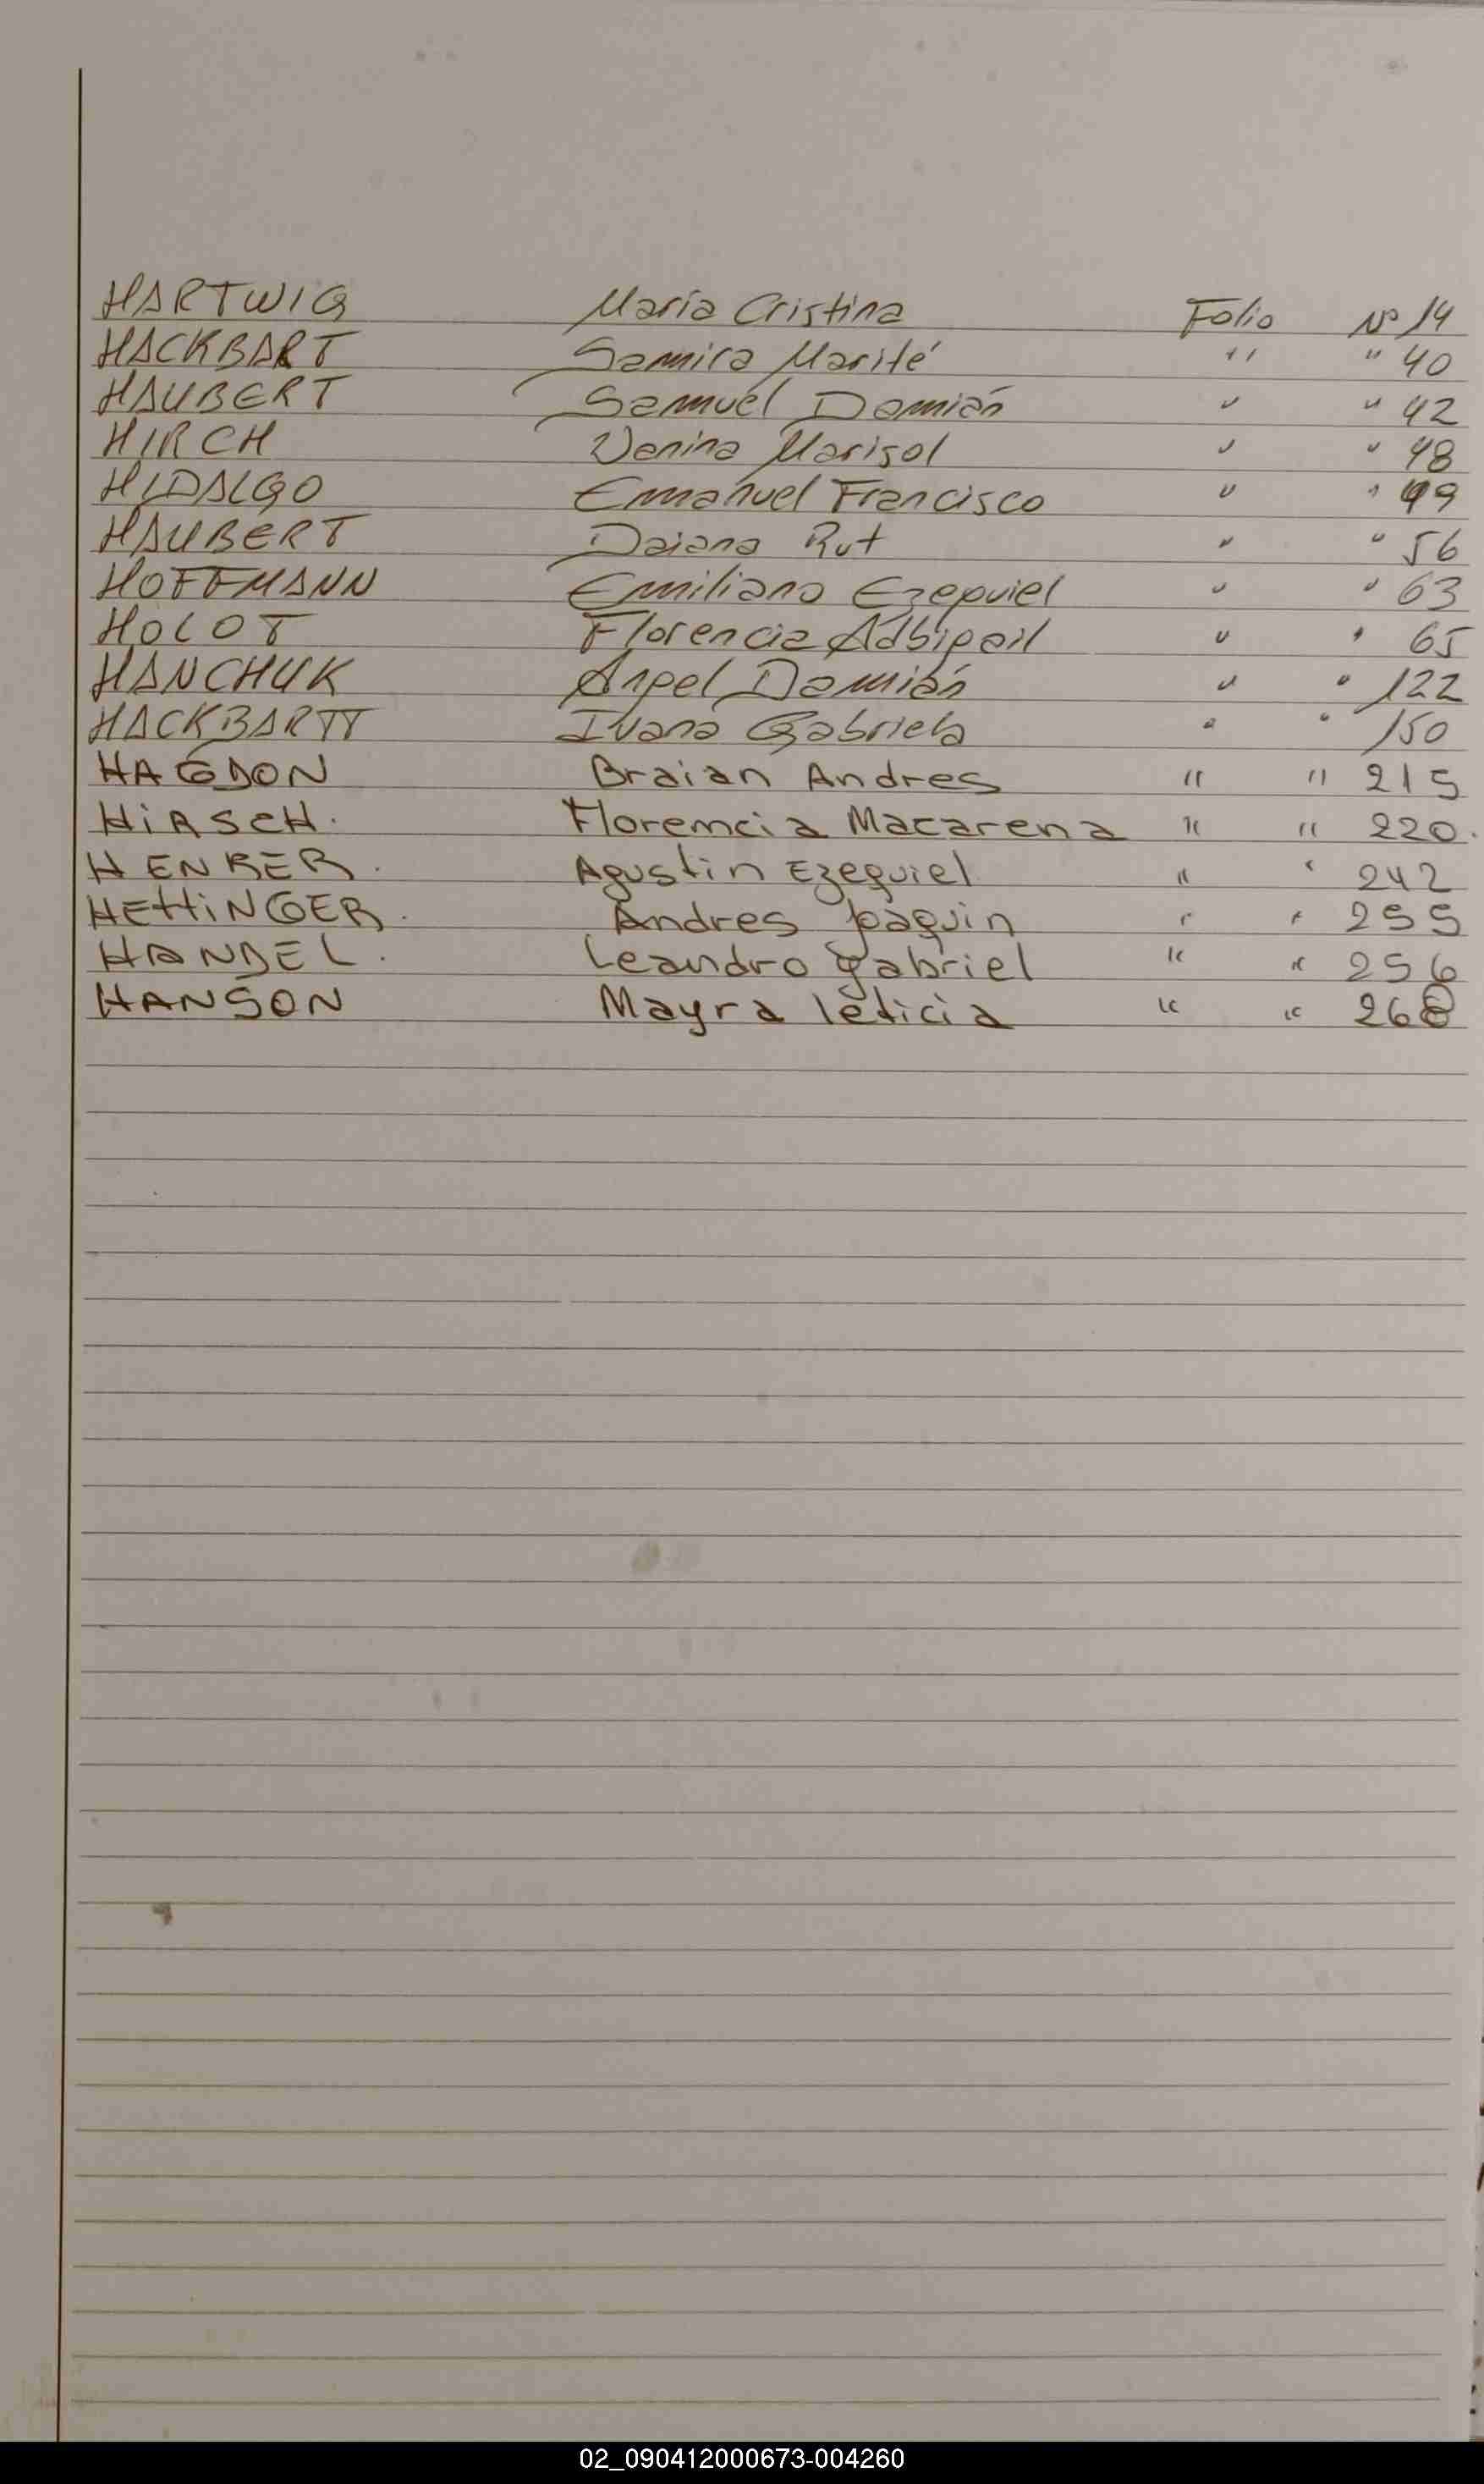 HARTWIG María Cristina Folio Nº 14
HACKBART Samira Marité " " 40
HAUBERT Samuel Damián " " 42
HIRCH Vanina Marisol " " 48
HIDALGO Emanuel Francisco " " 49
HAUBERT Daiana Rut " " 56
HOFFMANN Emiliano Ezequiel " " 63
HOLOT Florencia Adbigail " " 65
HANCHUK Angel Damián " " 122
HACKBARTT Ivana Gabriela " " 150
HAGDON Braian Andres " " 215
HiRSCH. Florencia Macarena " " 220.
HENKER. Agustin Ezequiel " " 242
HETTiNGER. Andres Joaquin " " 255
HANDEL. Leandro Gabriel " " 256
HANSON Mayra leticia " " 268
02_090412000673-004260